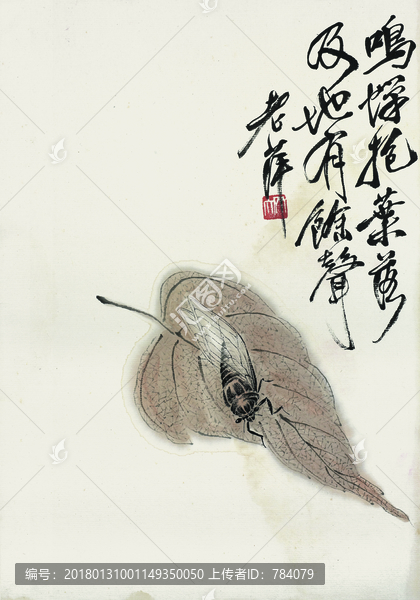 鳴蟬抱葉落
及地有餘聲
老萍
编号：20180131001149350050 上传者ID：784079